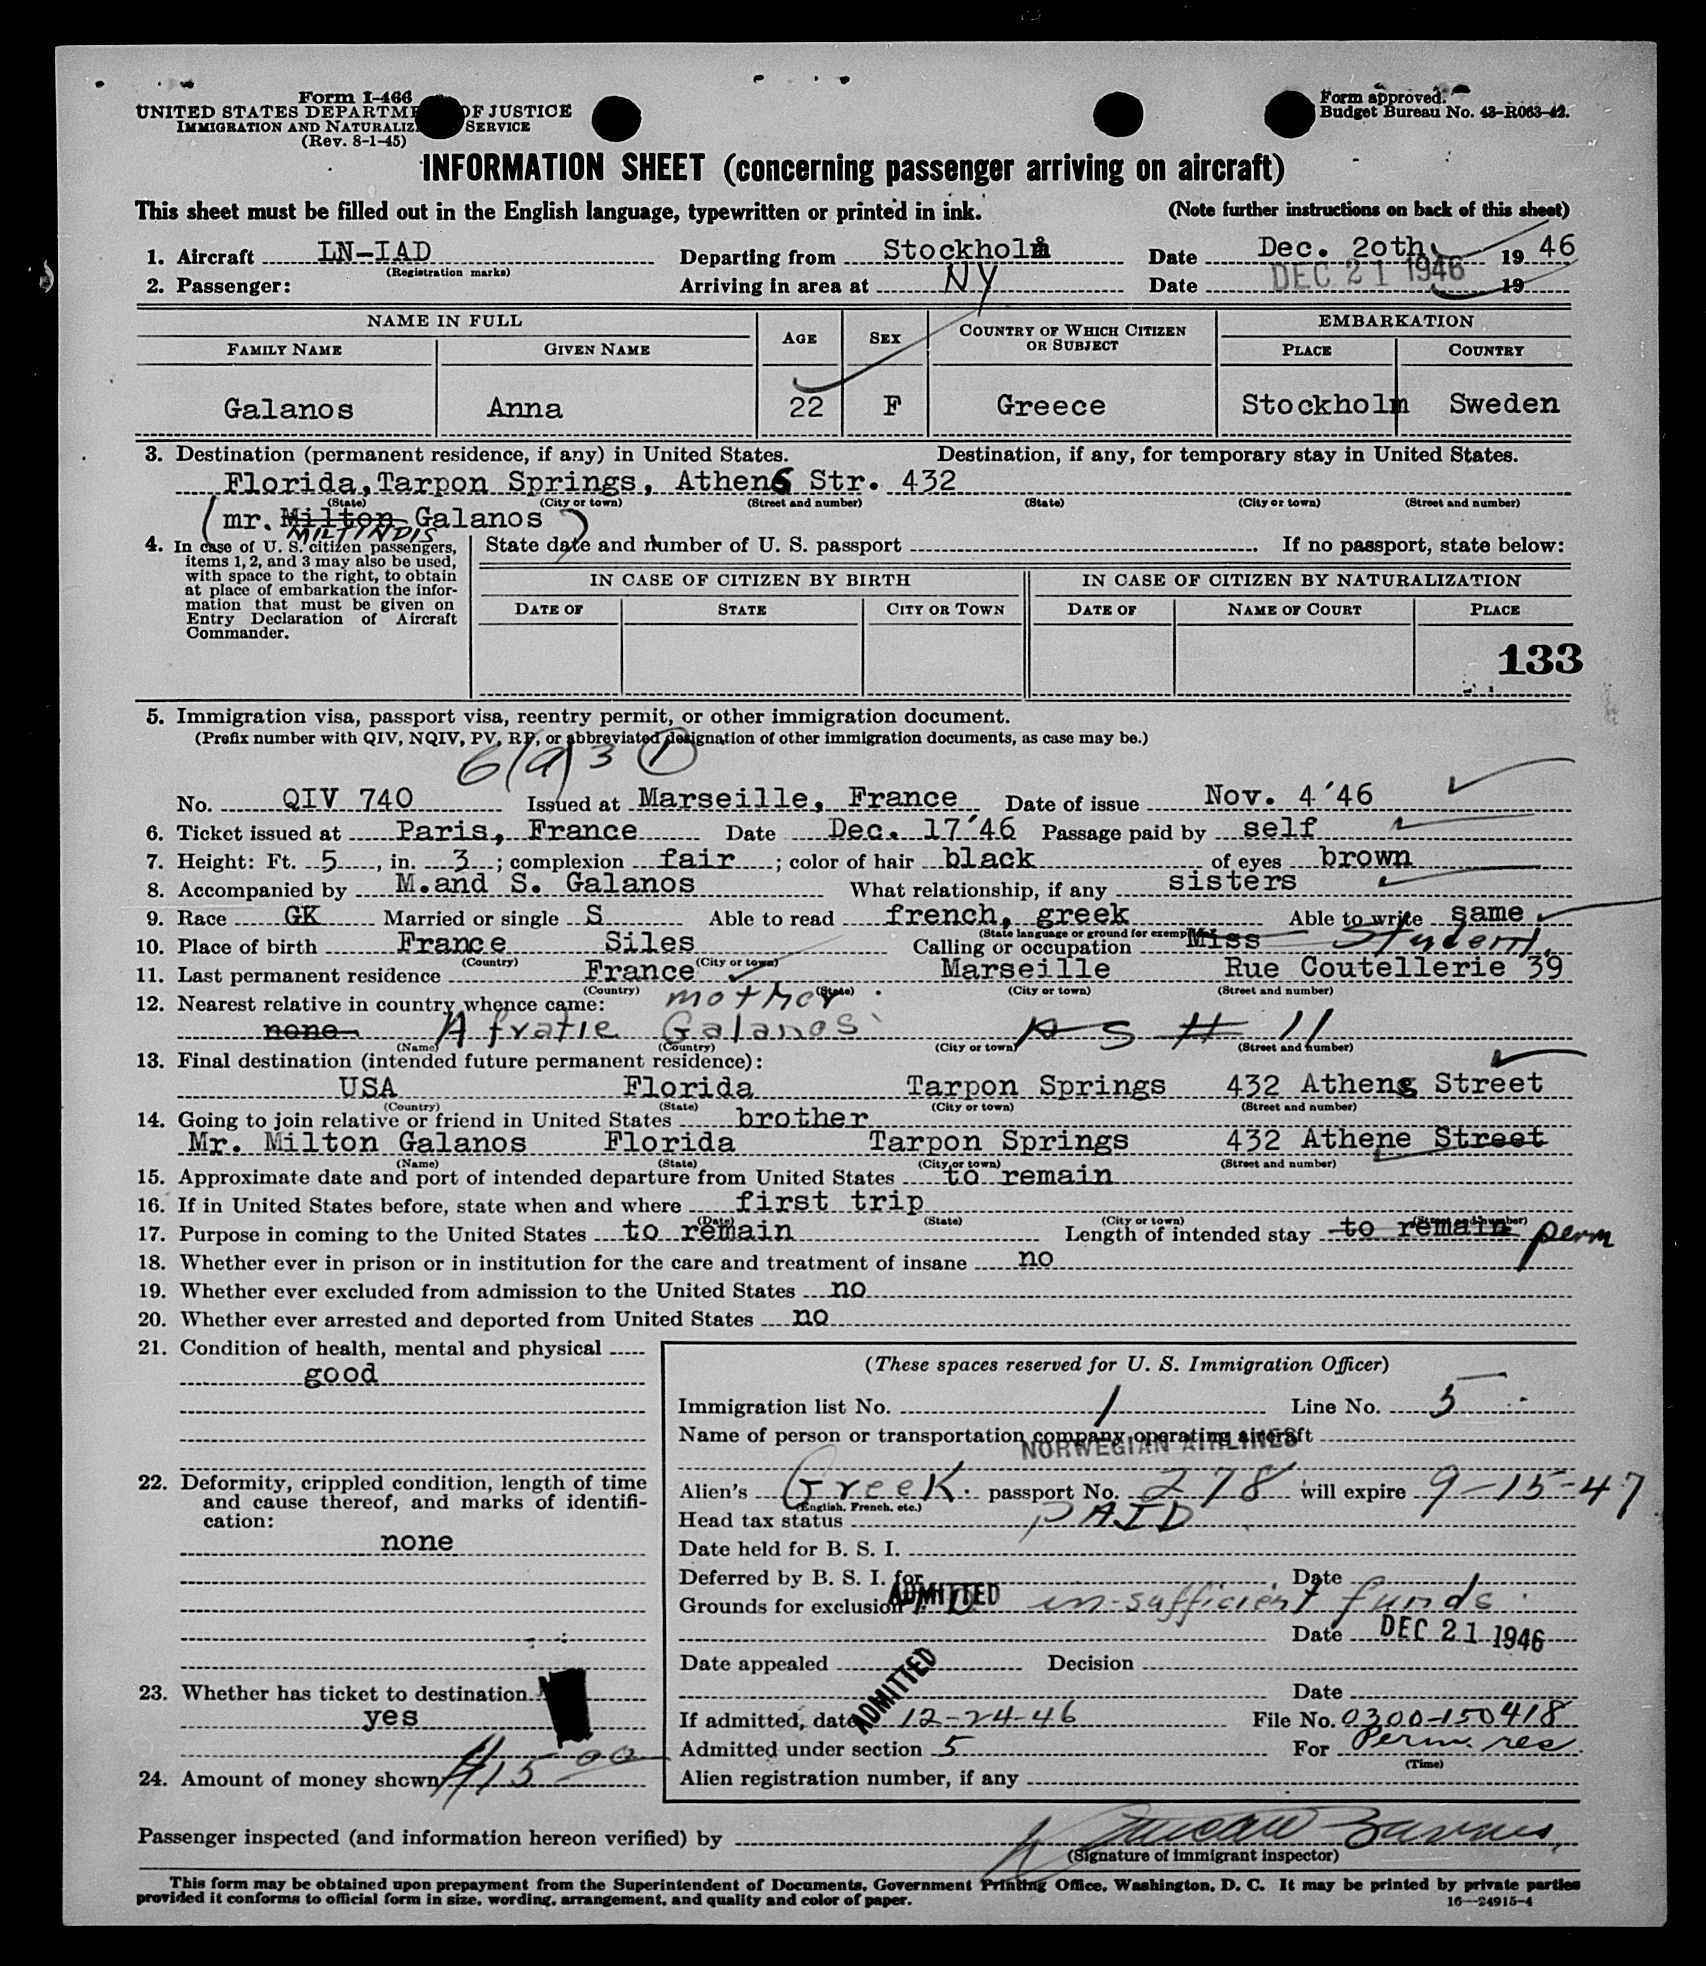 Form I-466
UNITED STATES DEPARTMENT OF JUSTICE
IMMIGRATION AND NATURALIZATION SERVICE
(Rev. 8-1-45)
Form approved.
Budget Bureau No. 43-R063-42.
INFORMATION SHEET (concerning passenger arriving on aircraft)
This sheet must be filled out in the English language, typewritten or printed in ink. (Note further instructions on back of this sheet)
1. Aircraft LN-IAD Departing from Stockholm Date Dec. 20th, 19 46
(Registration marks)
2. Passenger: Arriving in area at NY Date DEC 21 1946 19
NAME IN FULL AGE SEX COUNTRY OF WHICH CITIZEN OR SUBJECT EMBARKATION
FAMILY NAME GIVEN NAME PLACE COUNTRY
Galanos Anna 22 F Greece Stockholm Sweden
3. Destination (permanent residence, if any) in United States. Destination, if any, for temporary stay in United States.
Florida, Tarpon Springs, Athens Str. 432
(State) (City or town) (Street and number) (State) (City or town) (Street and number)
(mr. Milton Galanos)
MILTINDIS
4. In case of U. S. citizen passengers, items 1, 2, and 3 may also be used, with space to the right, to obtain at place of embarkation the information that must be given on Entry Declaration of Aircraft Commander.
State date and number of U. S. passport If no passport, state below:
IN CASE OF CITIZEN BY BIRTH IN CASE OF CITIZEN BY NATURALIZATION
DATE OF STATE CITY OR TOWN DATE OF NAME OF COURT PLACE
133
5. Immigration visa, passport visa, reentry permit, or other immigration document.
(Prefix number with QIV, NQIV, PV, RP, or abbreviated designation of other immigration documents, as case may be.)
6(a)3 1
No. QIV 740 Issued at Marseille, France Date of issue Nov. 4 '46
6. Ticket issued at Paris, France Date Dec. 17 '46 Passage paid by self
7. Height: Ft. 5, in. 3; complexion fair; color of hair black of eyes brown
8. Accompanied by M.and S. Galanos What relationship, if any sisters
9. Race GK Married or single S Able to read french, greek Able to write same
(State language or ground for exemp
10. Place of birth France Siles Calling or occupation Miss Student
(Country) (City or town)
11. Last permanent residence France Marseille Rue Coutellerie 39
(Country) (State) (City or town) (Street and number)
12. Nearest relative in country whence came: mother
none Afratie Galanos AS # 11
(Name) (Country) (City or town) (Street and number)
13. Final destination (intended future permanent residence):
USA Florida Tarpon Springs 432 Athens Street
(Country) (State) (City or town) (Street and number)
14. Going to join relative or friend in United States brother
Mr. Milton Galanos Florida Tarpon Springs 432 Athene Street
(Name) (State) (City or town) (Street and number)
15. Approximate date and port of intended departure from United States to remain
16. If in United States before, state when and where first trip
(Date) (State) (City or town) (Street and number)
17. Purpose in coming to the United States to remain Length of intended stay to remain perm
18. Whether ever in prison or in institution for the care and treatment of insane no
19. Whether ever excluded from admission to the United States no
20. Whether ever arrested and deported from United States no
21. Condition of health, mental and physical
good
22. Deformity, crippled condition, length of time and cause thereof, and marks of identification:
none
23. Whether has ticket to destination
yes
24. Amount of money shown $15 00
(These spaces reserved for U. S. Immigration Officer)
Immigration list No. 1 Line No. 5
Name of person or transportation company operating aircraft
NORWEGIAN AIRLINES
Alien's Greek passport No. 278 will expire 9-15-47
(English, French, etc.)
Head tax status PAID
Date held for B. S. I.
Deferred by B. S. I. for Date
Grounds for exclusion ADMITTED in-sufficient funds
Date DEC 21 1946
Date appealed Decision
ADMITTED
Date
If admitted, date 12-24-46 File No. 0300-150418
Admitted under section 5 For Perm. res
(Time)
Alien registration number, if any
Passenger inspected (and information hereon verified) by
(Signature of immigrant inspector)
This form may be obtained upon prepayment from the Superintendent of Documents, Government Printing Office, Washington, D. C. It may be printed by private parties
provided it conforms to official form in size, wording, arrangement, and quality and color of paper.
16—24915-4